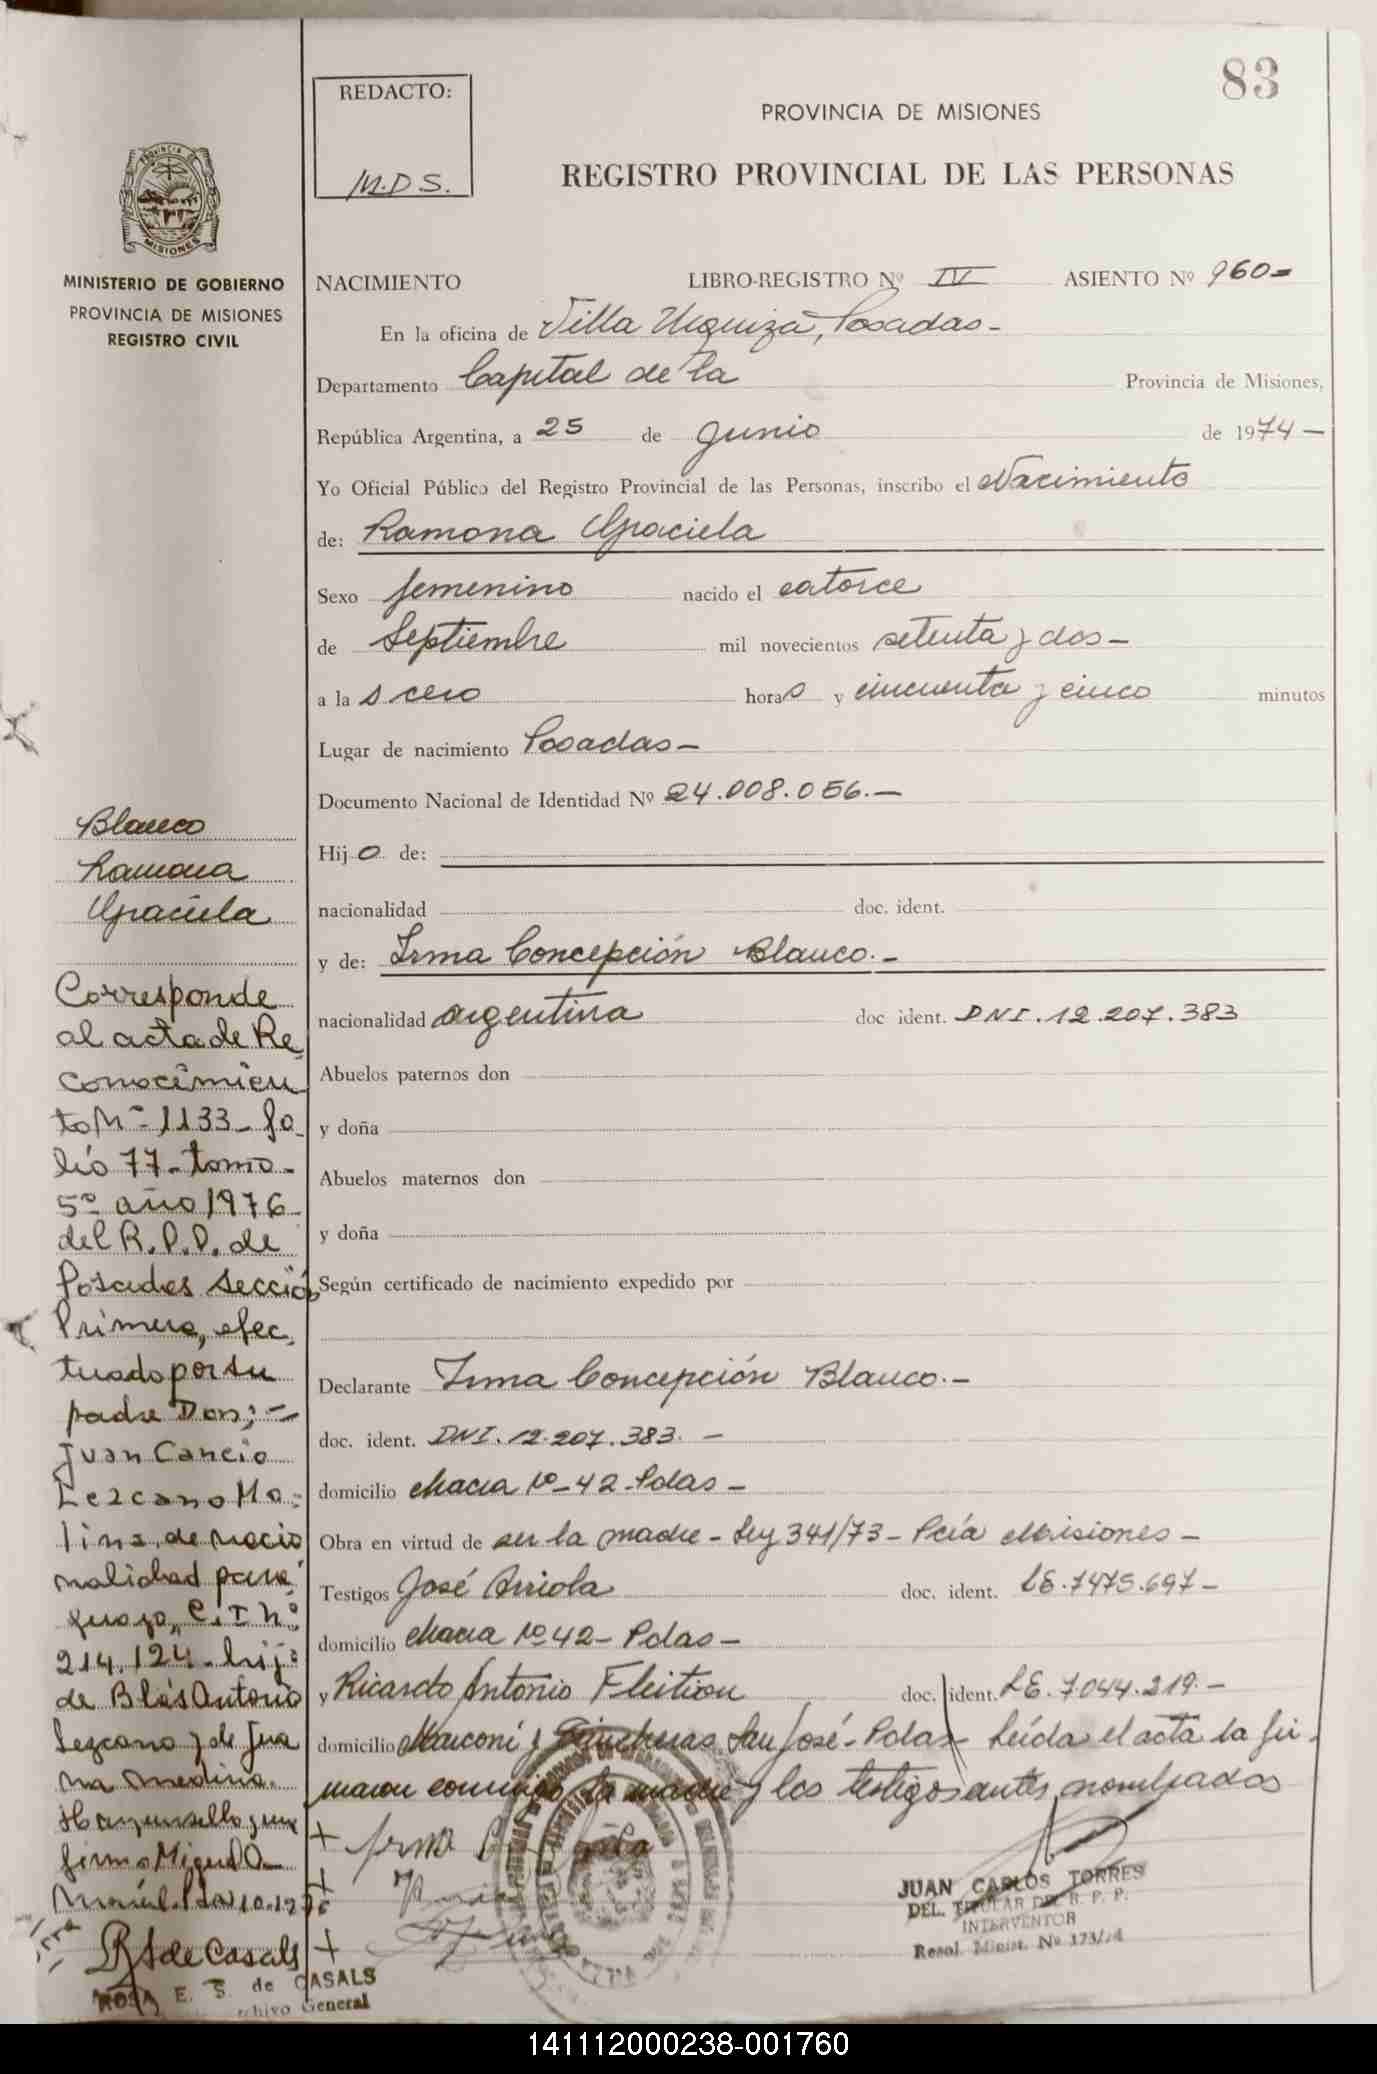 83
REDACTO:
M.D.S.
PROVINCIA DE MISIONES
REGISTRO PROVINCIAL DE LAS PERSONAS
PROVINCIA DE
MISIONES
MINISTERIO DE GOBIERNO
PROVINCIA DE MISIONES
REGISTRO CIVIL
NACIMIENTO LIBRO-REGISTRO Nº IV ASIENTO Nº 960-
En la oficina de Villa Urquiza, Posadas-
Departamento Capital de la Provincia de Misiones,
República Argentina, a 25 de Junio de 1974-
Yo Oficial Público del Registro Provincial de las Personas, inscribo el Nacimiento
de: Ramona Graciela
Sexo femenino nacido el catorce
de Septiembre mil novecientos setenta y dos-
a la s cero horas y cincuenta y cinco minutos
Lugar de nacimiento Posadas-
Documento Nacional de Identidad Nº 24.008.056.-
Hij a de:
nacionalidad doc. ident.
y de: Irma Concepción Blanco.-
nacionalidad argentina doc ident. DNI.12.207.383
Abuelos paternos don
y doña
Abuelos maternos don
y doña
Según certificado de nacimiento expedido por
Declarante Irma Concepción Blanco.-
doc. ident. DNI.12.207.383.-
domicilio Chacra Nº-42-Pdas-
Obra en virtud de ser la madre-Ley 341/73-Pcía Misiones-
Testigos José Arriola doc. ident. LE.7475.697-
domicilio Chacra Nº 42-Pdas-
y Ricardo Antonio Fleitiou doc. ident. LE.7044.219.-
domicilio Marconi y San José-Pdas- Leída el acta la fir-
maron conmigo la madre y los testigos antes nombrados
Blanco
Ramona
Graciela
Corresponde
al acta de Re
conocimien
to Nº 1133-fo
lio 77-tomo-
5º año 1976-
del R.P.P. de
Posadas sección
Primera, efec
tuado por su
padre Don;-
Juan Cancio
Lezcano Mo-
lina, de nacio
nalidad para
guaya, C.I Nº
214.124-hijo
de Blás Antonio
Lezcano y de Jua
na Medina.
Hay un sello y una
firma Miguel O-
Pdas 10.1976
RS de Casals
ROSA E. S. de CASALS
Archivo General
JUAN CARLOS TORRES
DEL. TITULAR DEL R. P. P.
INTERVENTOR
Resol. Minist. Nº 173/74
141112000238-001760